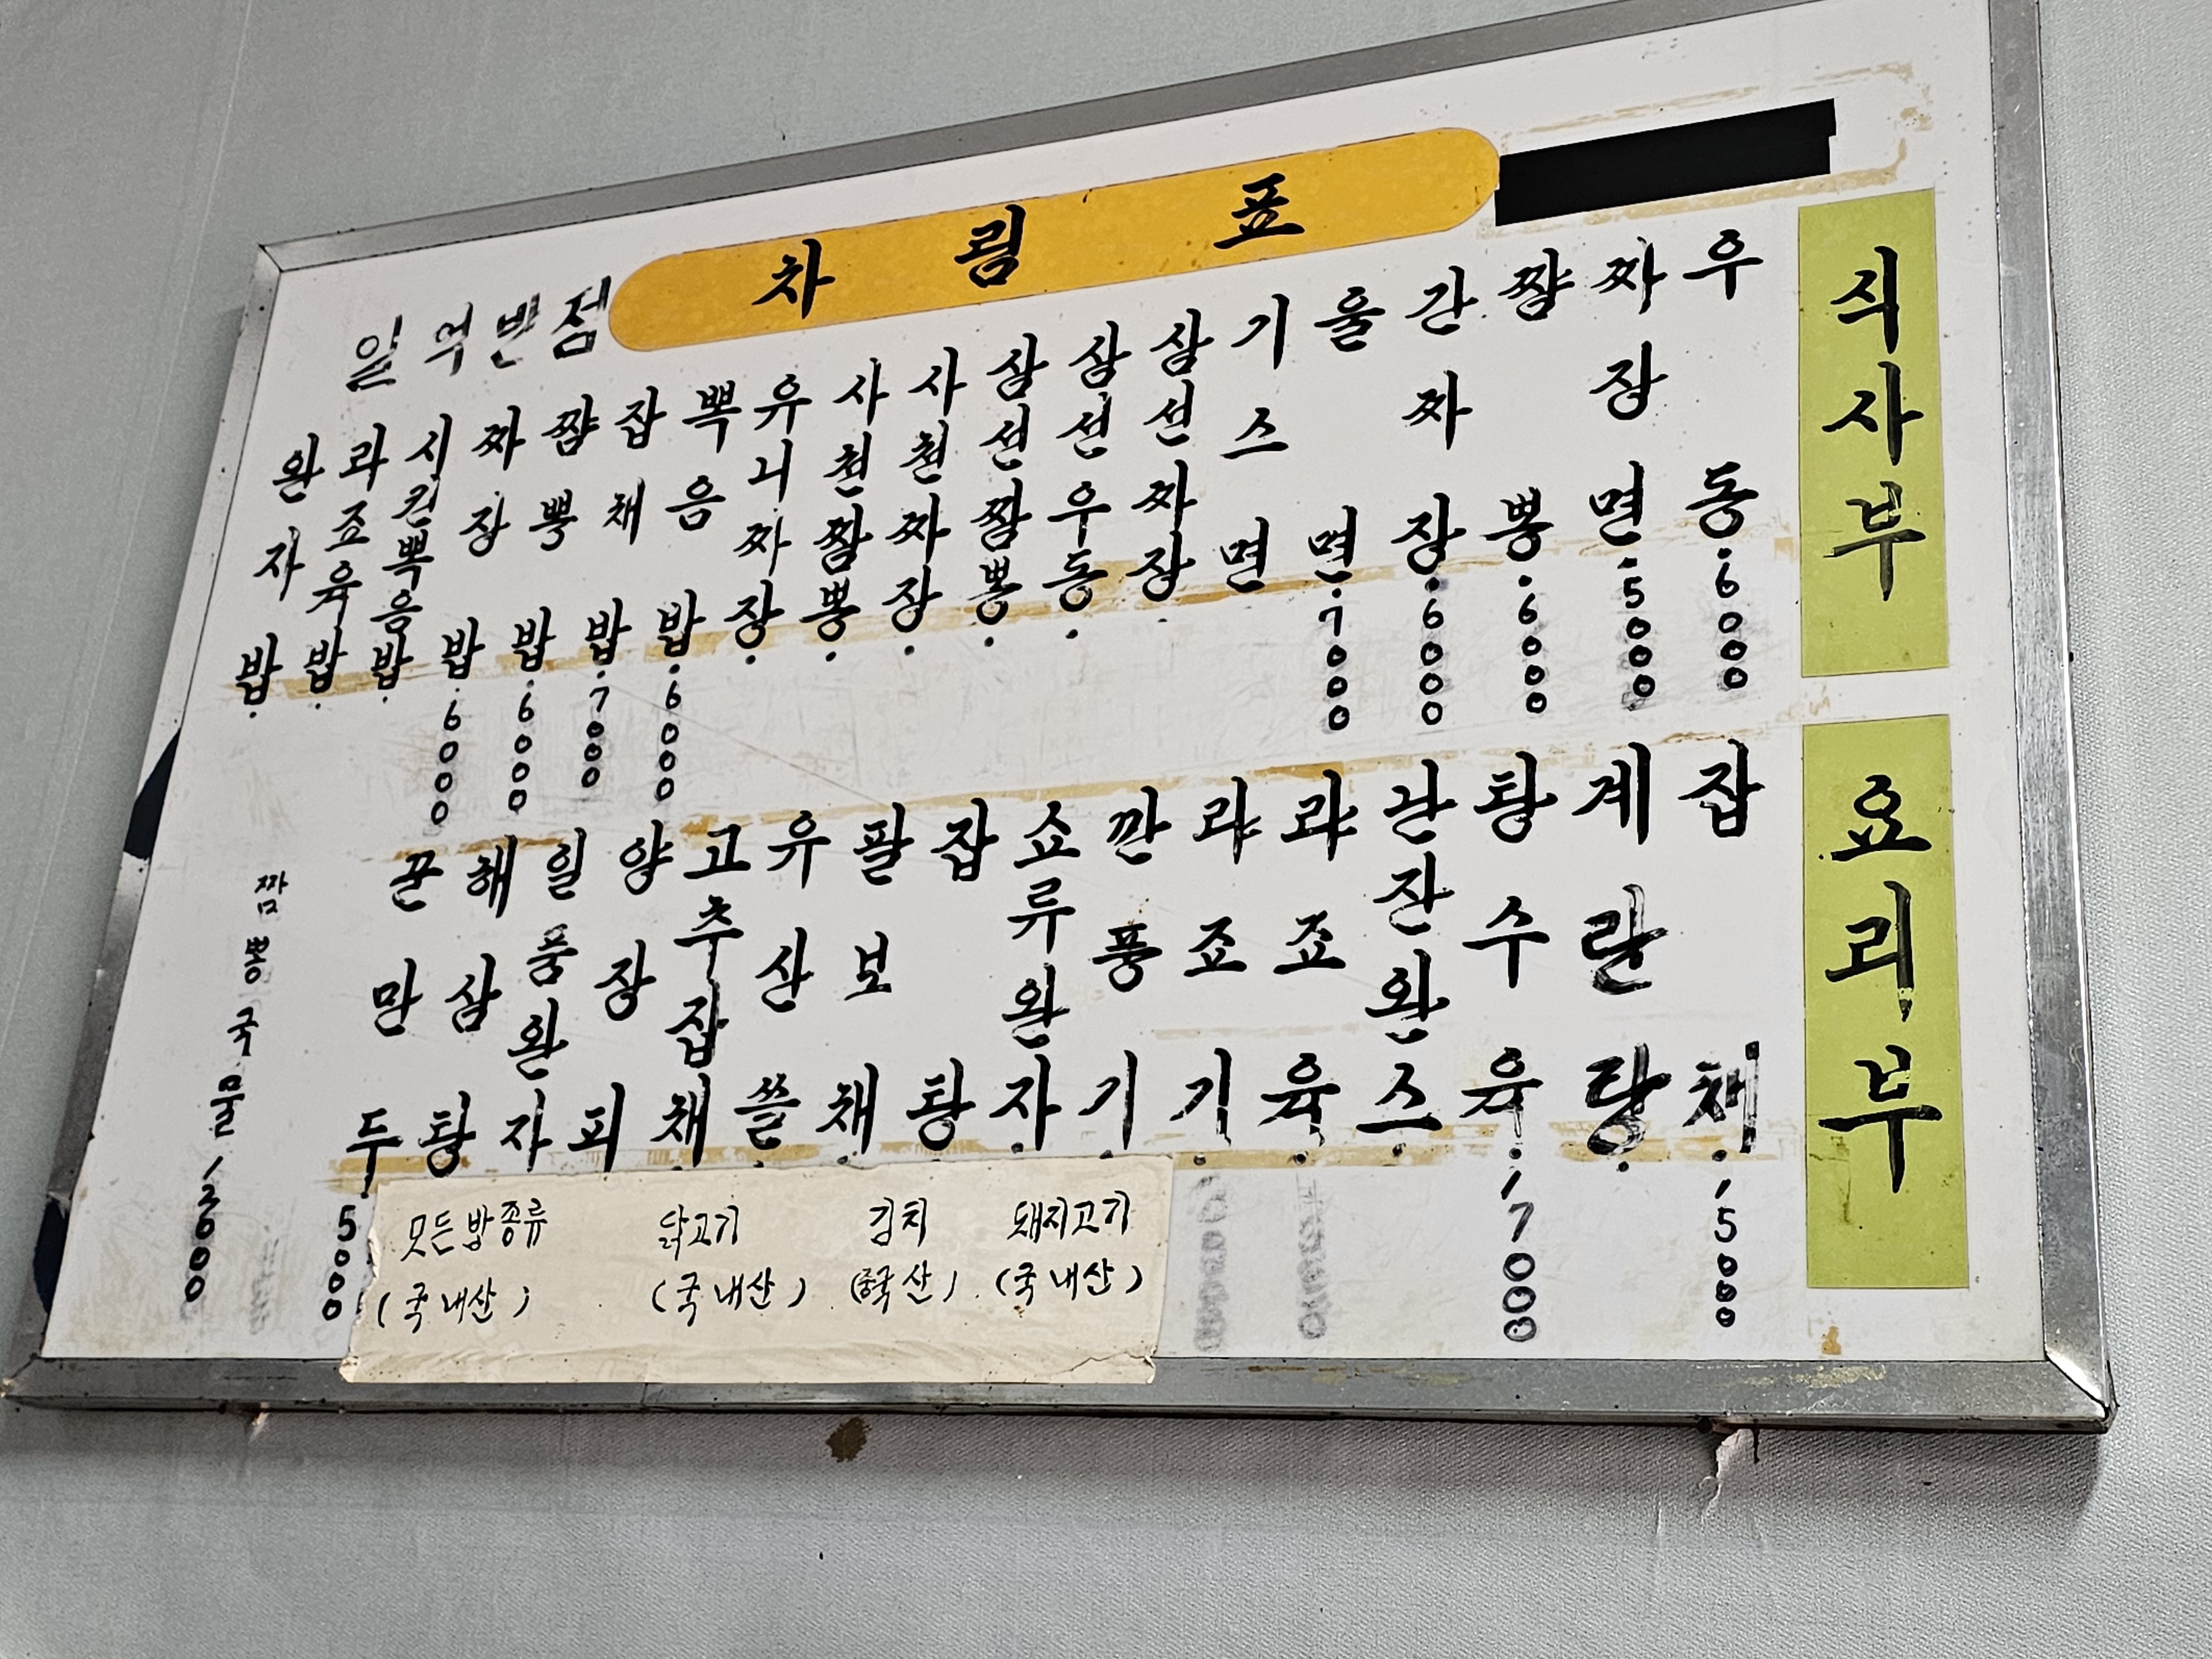 차림표
일억반점
식사부
우동.6000
짜장면.5000
짬뽕.6000
간짜장.6000
울면.7000
기스면
삼선짜장.
삼선우동.
삼선짬뽕.
사천짜장.
사천짬뽕.
유니짜장.
뽁음밥.6000
잡채밥.7000
짬뽕밥.6000
짜장밥.6000
시킨뽁음밥.
라조육밥.
완자밥.
요리부
잡채.15000
계란탕.
탕수육.17000
난잔완스.
라조육.
라조기.
깐풍기.
쇼류완자.
잡탕.
팔보채.
유산쓸.
고추잡채.
양장피
일품완자
해삼탕
꾼만두.5000
짬뽕국물
돼지고기
(국내산)
김치
(중국산)
닭고기
(국내산)
모든밥종류
(국내산)